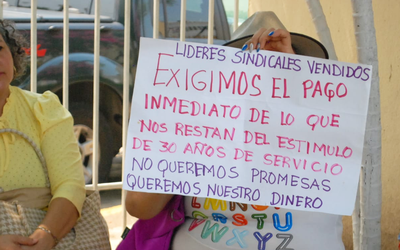 LIDERES SINDICALES VENDIDOS
EXIGIMOS EL PAGO
INMEDIATO DE LO QUE
NOS RESTAN DEL ESTIMULO
DE 30 AÑOS DE SERVICIO
NO QUEREMOS PROMESAS
QUEREMOS NUESTRO DINERO